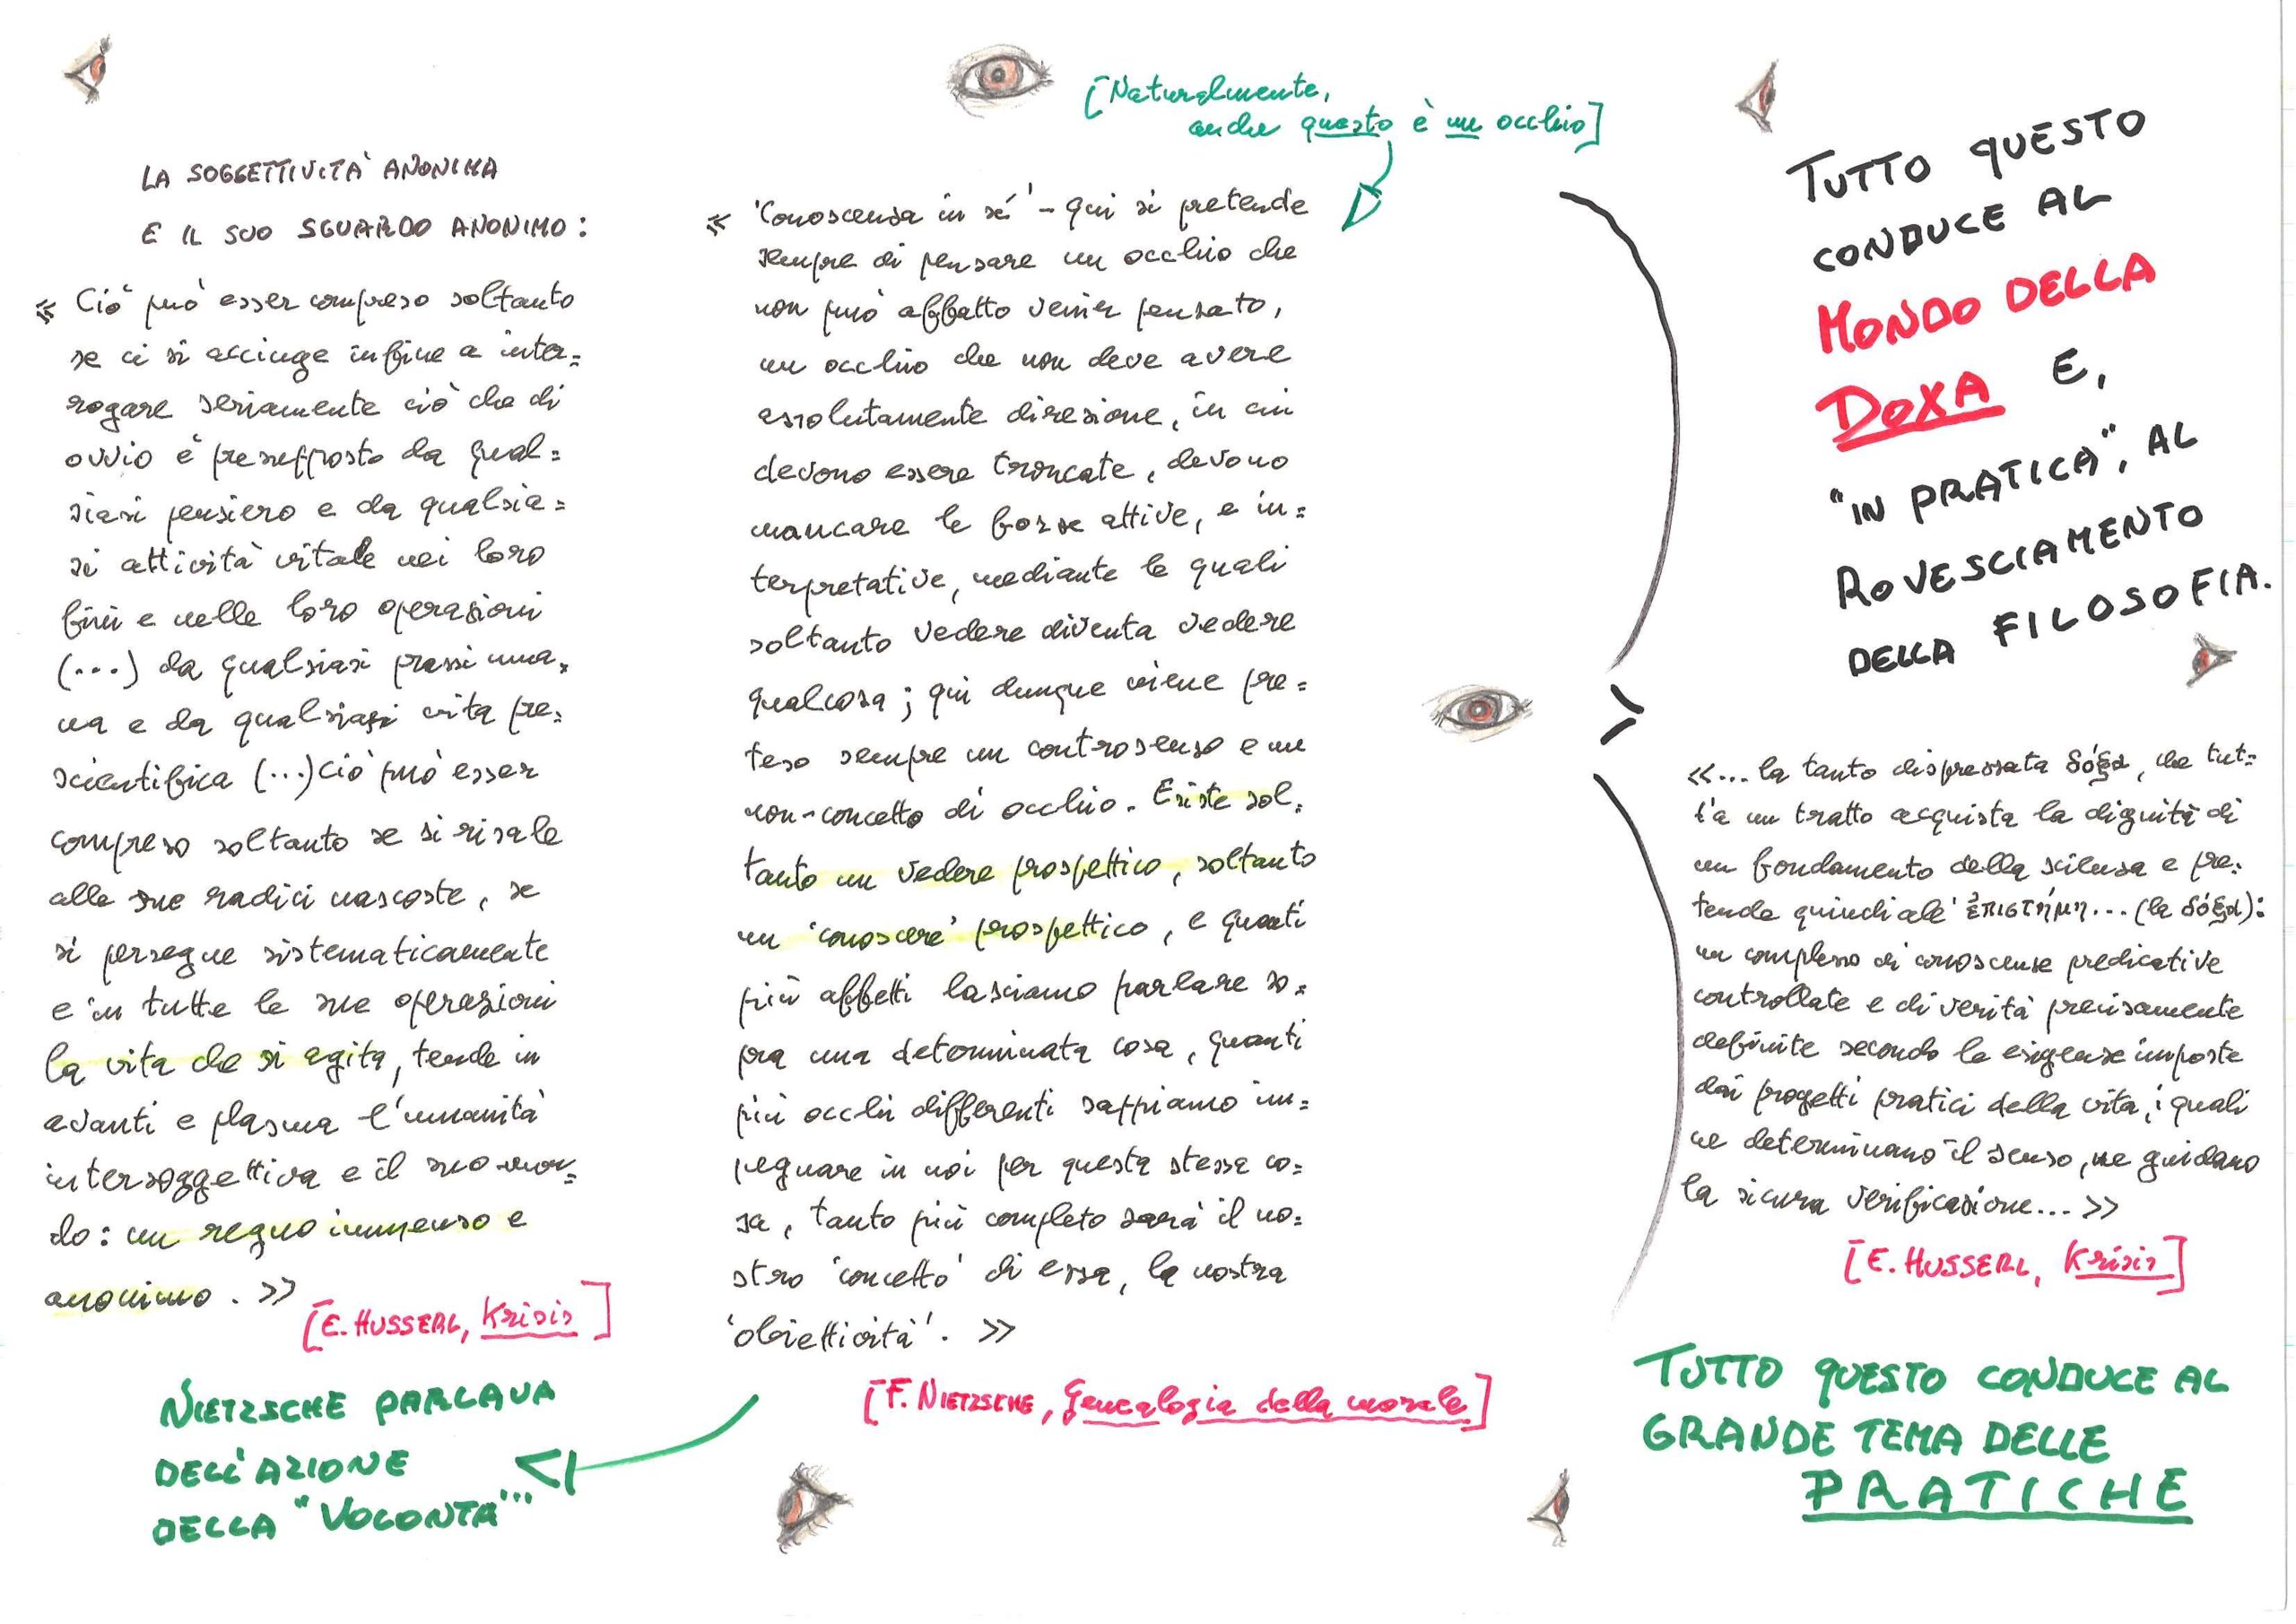 LA SOGGETTIVITÀ ANONIMA
E IL SUO SGUARDO ANONIMO:
« Ciò può esser compreso soltanto
se ci si accinge infine a inter=
rogare seriamente ciò che di
ovvio è presupposto da qual=
siasi pensiero e da qualsia=
si attività vitale nei loro
fini e nelle loro operazioni
(...) da qualsiasi prassi uma=
na e da qualsiasi vita pre=
scientifica (...) Ciò può esser
compreso soltanto se si risale
alle sue radici nascoste, se
si persegue sistematicamente
e in tutte le sue operazioni
la vita che si agita, tende in
avanti e plasma l'umanità
intersoggettiva e il suo mon=
do: un regno immenso e
anonimo. »
[E. HUSSERL, Krisis]
NIETZSCHE PARLAVA
DELL'AZIONE
DELLA "VOLONTÀ"...
[Naturalmente,
anche questo è un occhio]
« 'Conoscenza in sé' - qui si pretende
sempre di pensare un occhio che
non può affatto venir pensato,
un occhio che non deve avere
assolutamente direzione, in cui
devono essere troncate, devono
mancare le forze attive, e in=
terpretative, mediante le quali
soltanto vedere diventa vedere
qualcosa; qui dunque viene pre=
teso sempre un controsenso e un
non-concetto di occhio. Esiste sol=
tanto un vedere prospettico, soltanto
un 'conoscere' prospettico, e quanti
più affetti lasciamo parlare so=
pra una determinata cosa, quanti
più occhi differenti sappiamo im=
pegnare in noi per questa stessa co=
sa, tanto più completo sarà il no=
stro 'concetto' di essa, la nostra
'obiettività'. »
[F. NIETZSCHE, Genealogia della morale]
TUTTO QUESTO
CONDUCE AL
MONDO DELLA
DOXA E,
"IN PRATICA", AL
ROVESCIAMENTO
DELLA FILOSOFIA.
«... la tanto disprezzata δόξα, che tut=
t'a un tratto acquista la dignità di
un fondamento della scienza e pre=
tende quindi all' ἐπιστήμη... (la δόξα):
un complesso di conoscenze predicative
controllate e di verità precisamente
definite secondo le esigenze imposte
dai progetti pratici della vita, i quali
ne determinano il senso, ne guidano
la sicura verificazione... »
[E. HUSSERL, Krisis]
TUTTO QUESTO CONDUCE AL
GRANDE TEMA DELLE
PRATICHE